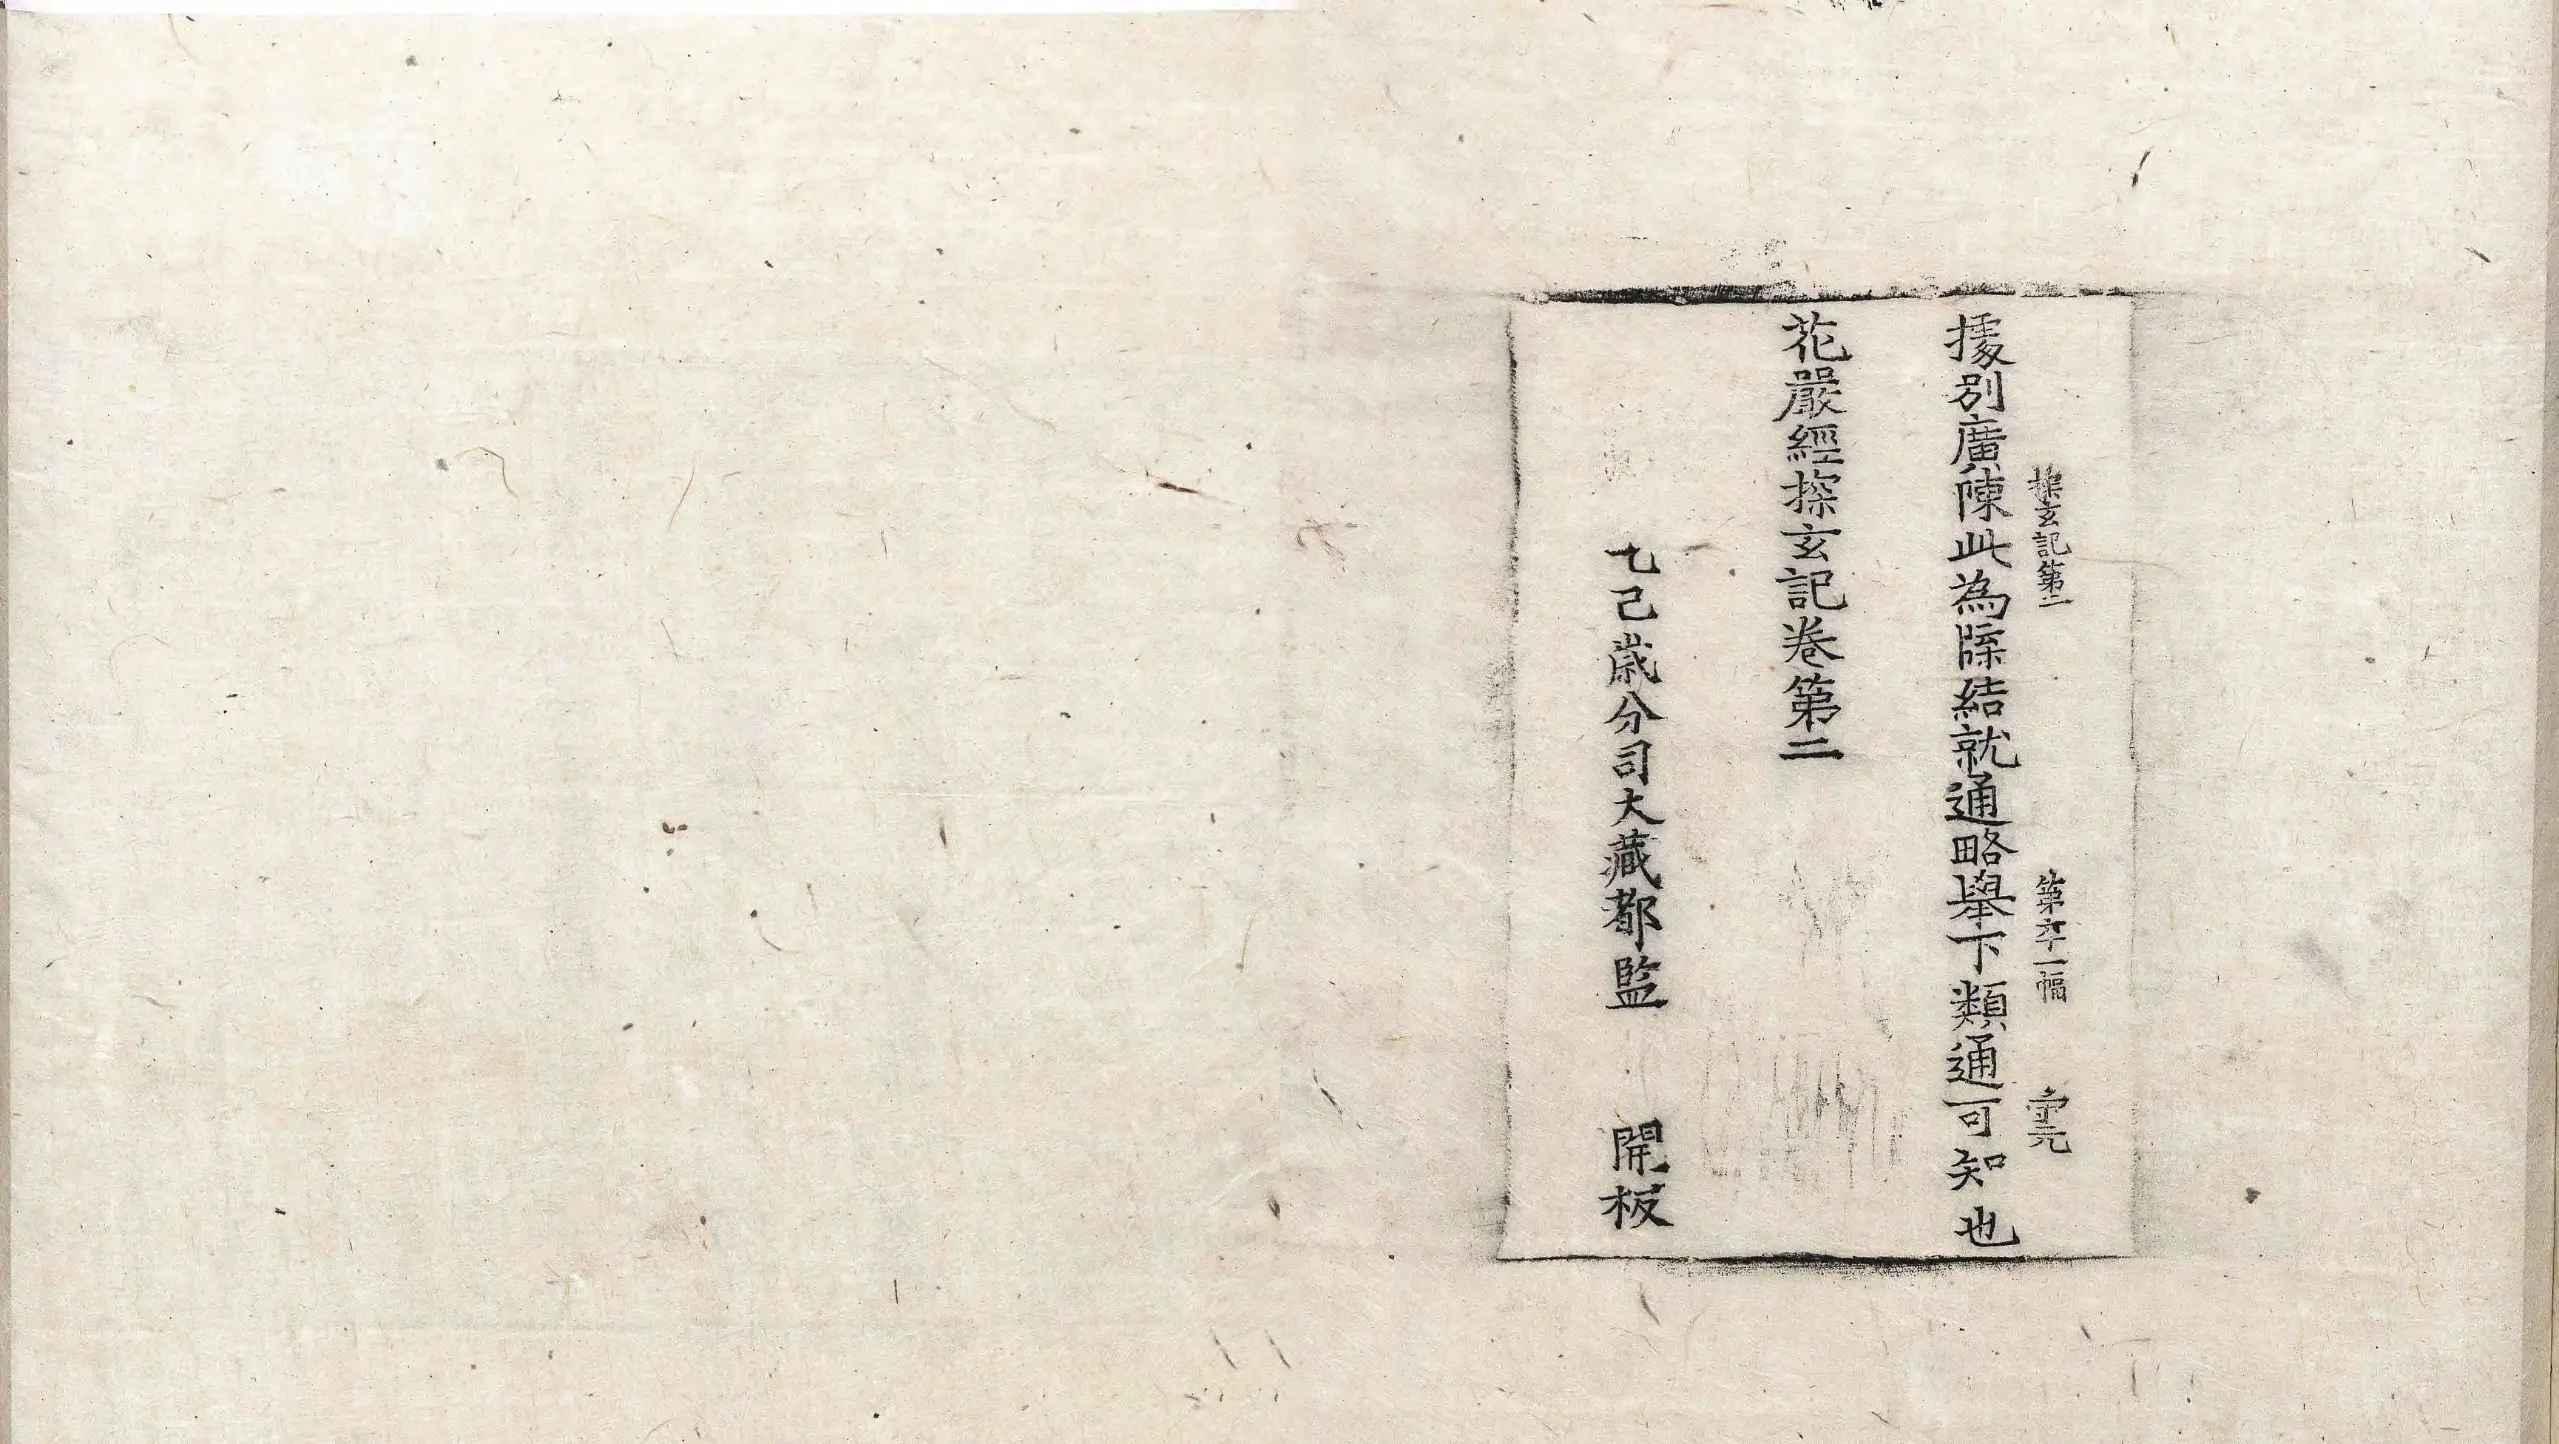 據別廣陳此為牒結就通略舉下類通可知也
探玄記第二 第六十一幅 元
花嚴經探玄記卷第二
乙巳歲分司大藏都監 開板